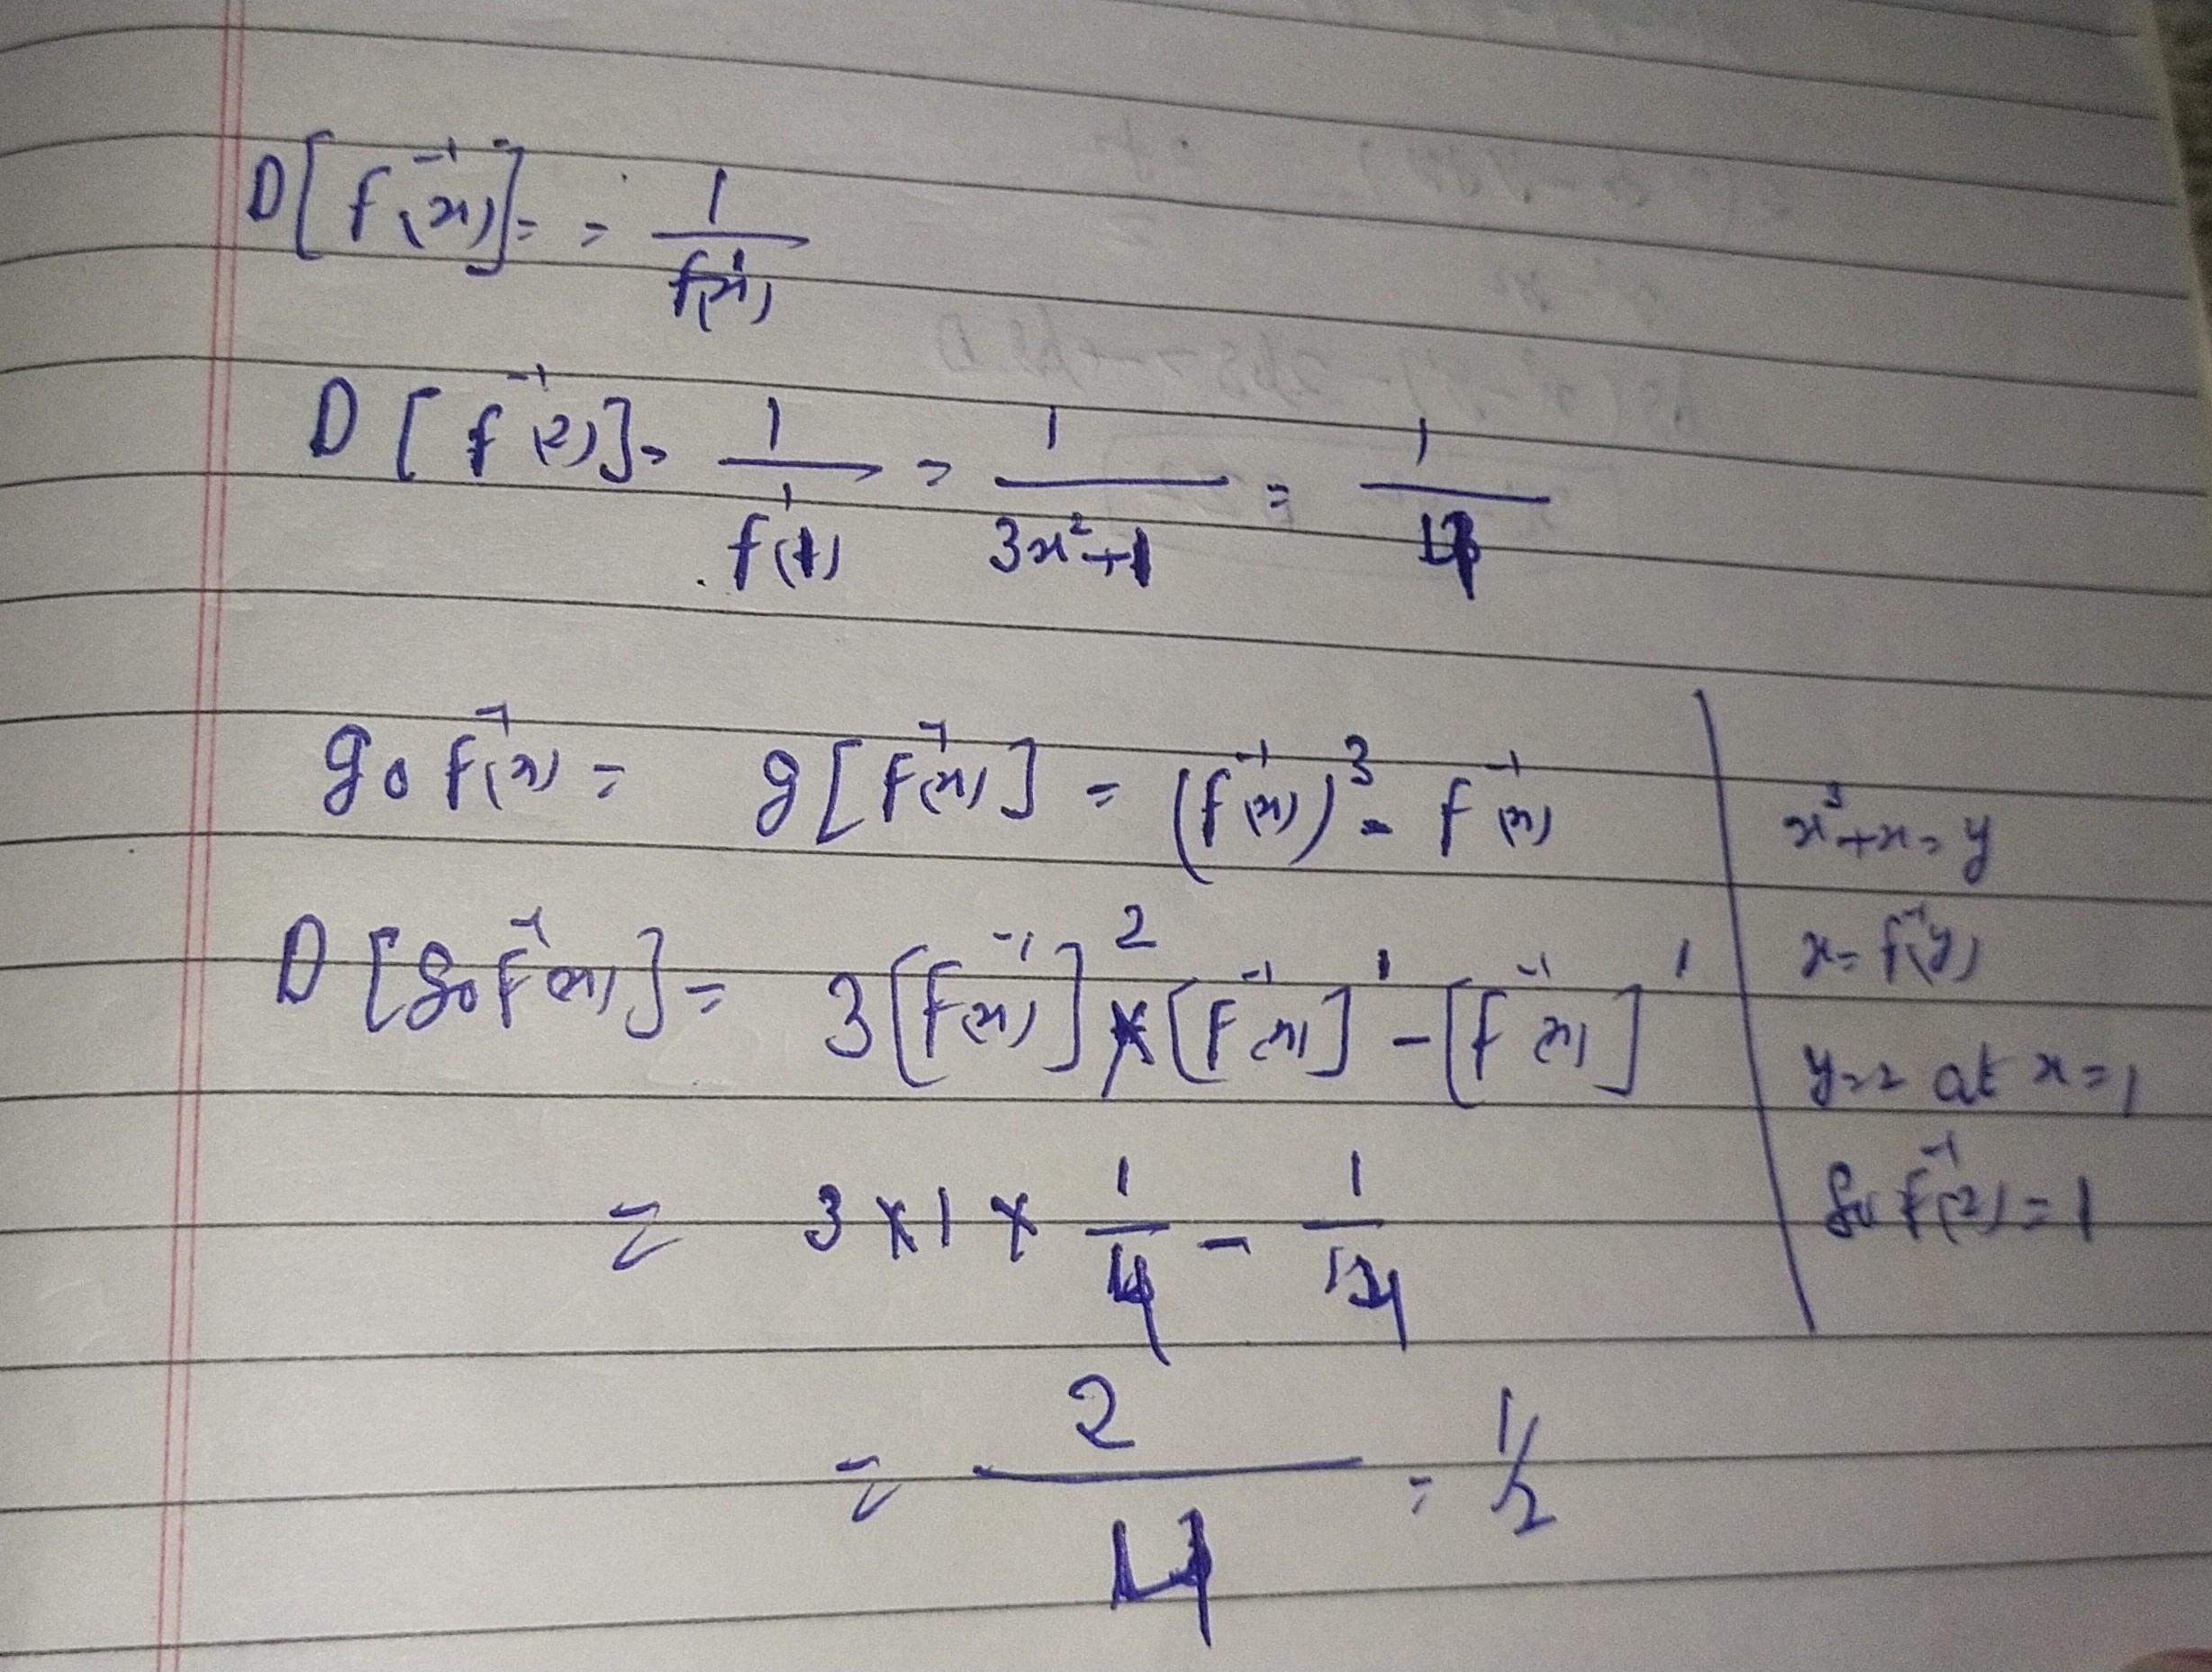 D[f⁻¹(x)] = = 1/f'(x)
D[f⁻¹(2)] = 1/f'(1) = 1/(3x²+1) = 1/4
gof⁻¹(x) = g[f⁻¹(x)] = (f⁻¹(x))³ - f⁻¹(x)
D[gof⁻¹(x)] = 3[f⁻¹(x)]² × [f⁻¹(x)]' - [f⁻¹(x)]'
= 3 × 1 × 1/4 - 1/4
= 2/4 = 1/2
x³+x = y
x = f⁻¹(y)
y=2 at x=1
So f⁻¹(2) = 1